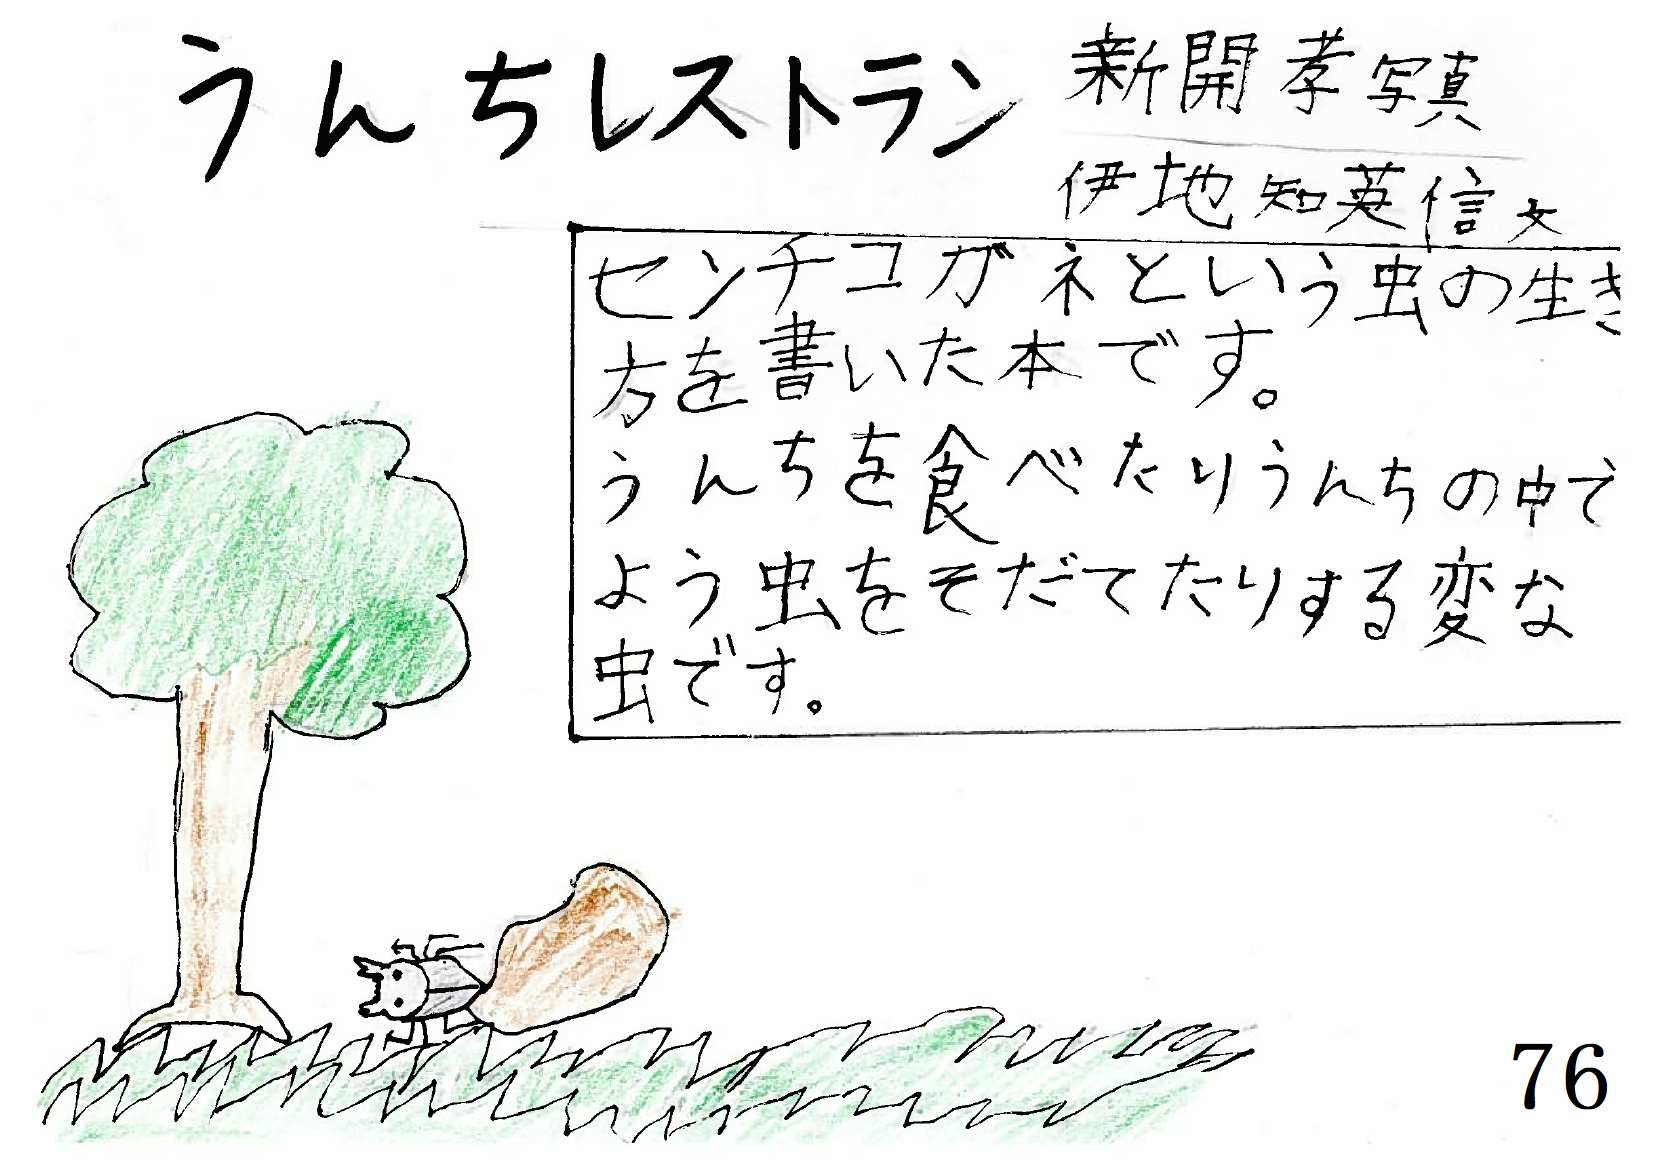 うんちレストラン
新開孝写真
伊地知英信文
センチコガネという虫の生き
方を書いた本です。
うんちを食べたりうんちの中で
よう虫をそだてたりする変な
虫です。
76